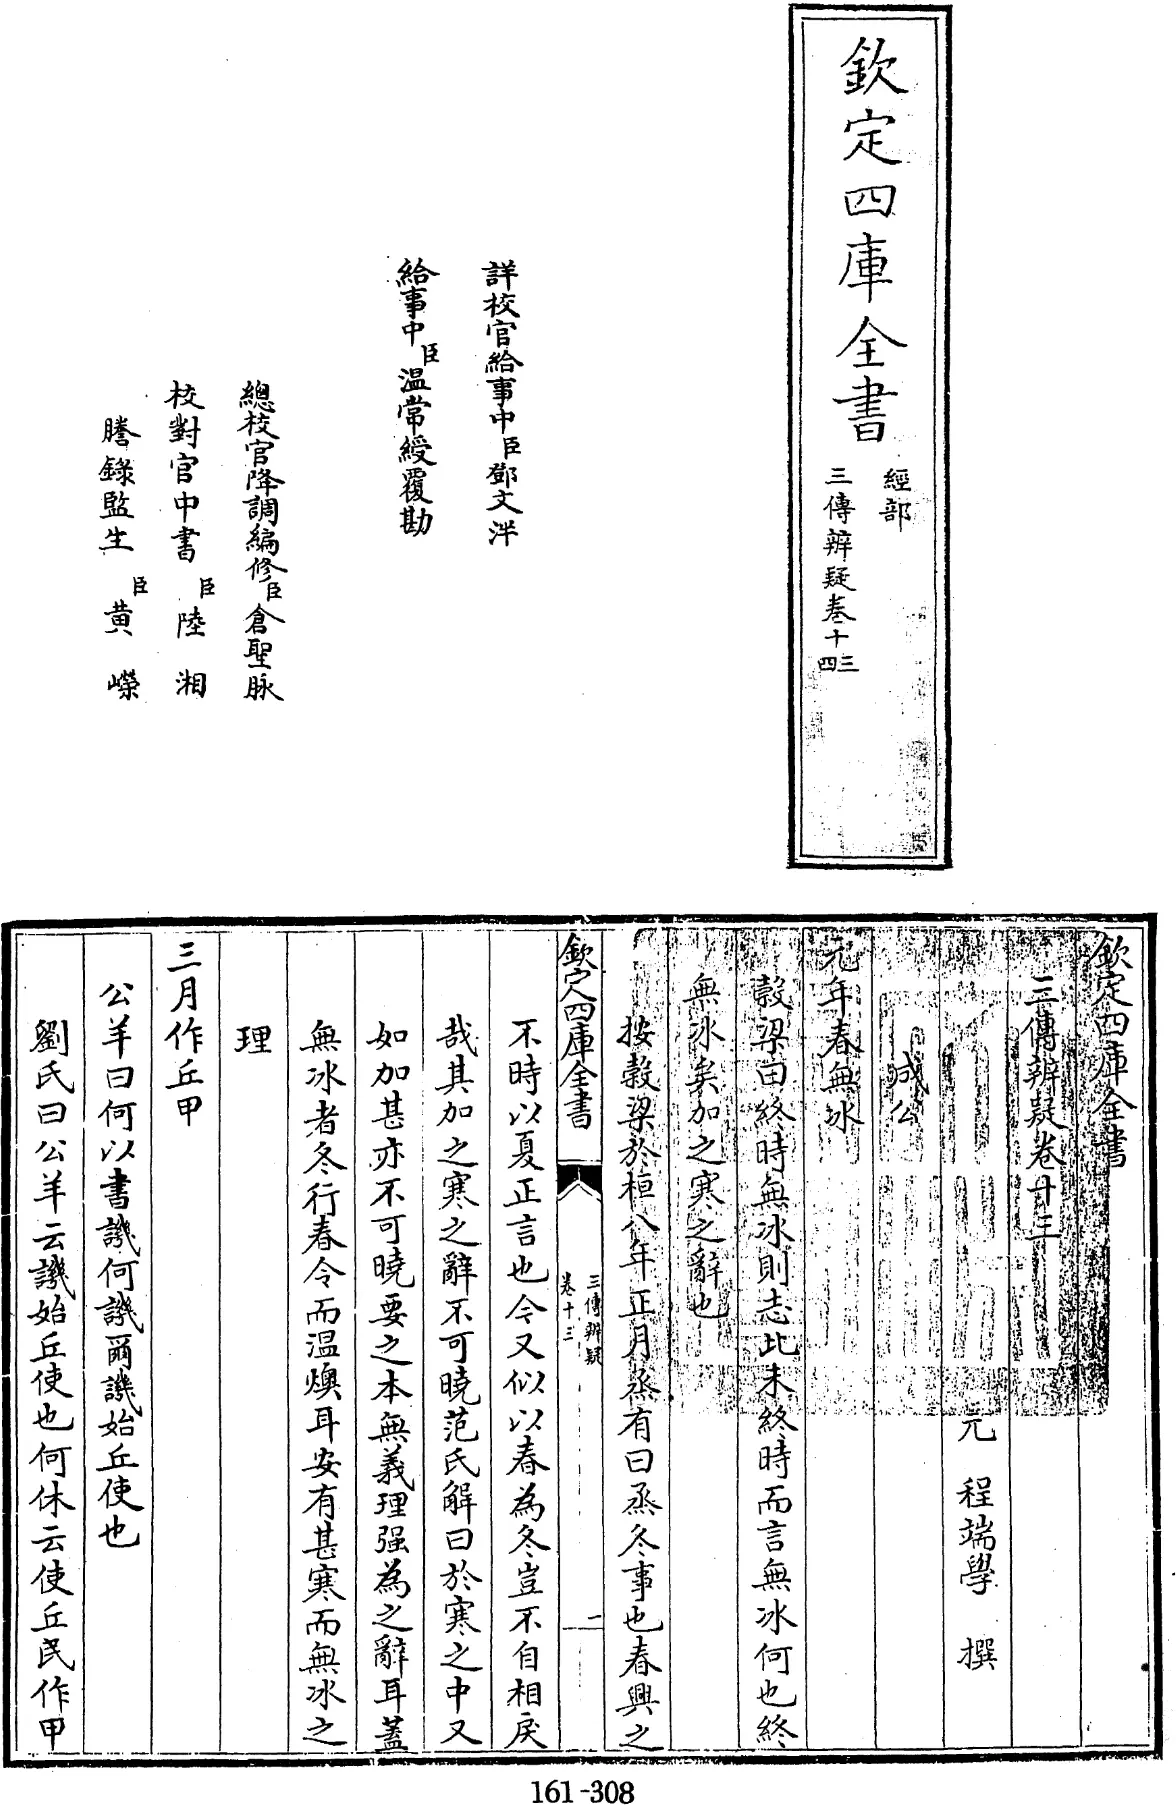 欽定四庫全書
經部
三傳辨疑卷十三
四
詳校官給事中臣鄧文泮
給事中臣温常綬覆勘
總校官降調編修臣倉聖脉
校對官中書臣陸湘
謄錄監生臣黄嶸
欽定四庫全書
三傳辨疑卷十三
元 程端學 撰
成公
元年春無冰
穀梁曰終時無冰則志此未終時而言無冰何也終
無冰矣加之寒之辭也
按穀梁於桓八年正月烝有曰烝冬事也春興之
欽定四庫全書
三傳辨疑
卷十三
一
不時以夏正言也今又似以春為冬豈不自相戾
哉其加之寒之辭不可曉范氏解曰於寒之中又
如加甚亦不可曉要之本無義理强為之辭耳蓋
無冰者冬行春令而温燠耳安有甚寒而無冰之
理
三月作丘甲
公羊曰何以書譏何譏爾譏始丘使也
劉氏曰公羊云譏始丘使也何休云使丘民作甲
161-308